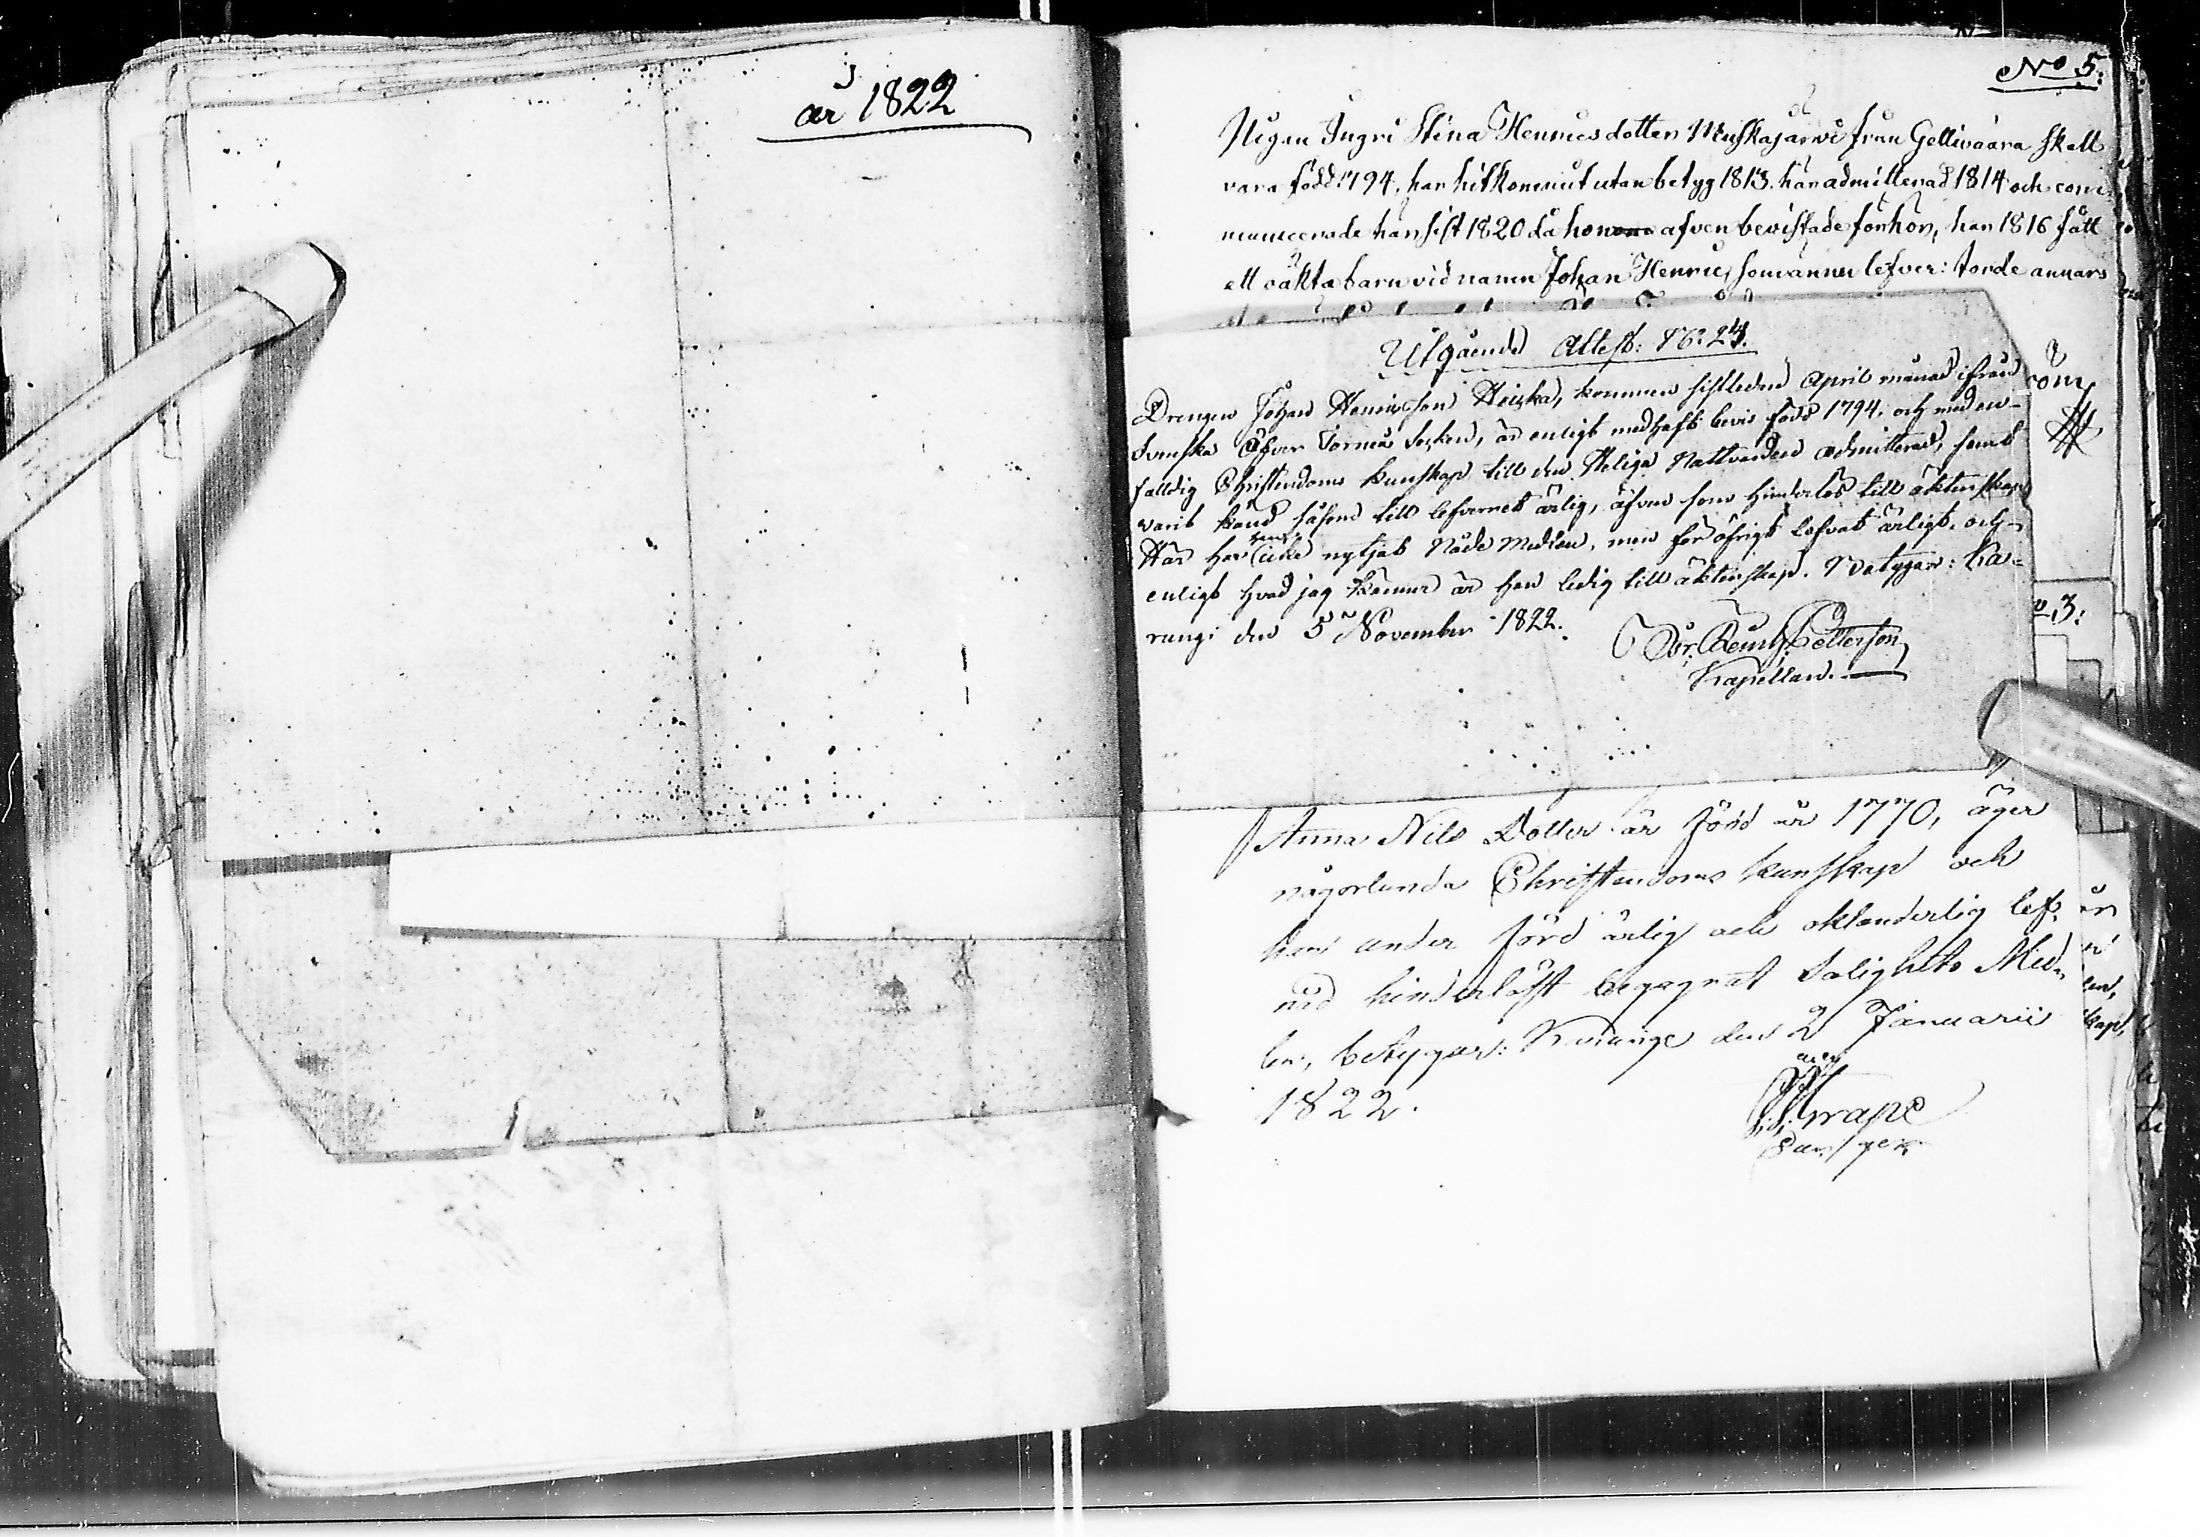 år 1822
No 5.
Pigan Ingri Stina Henricsdotter Muskajärvi från Gellivaara skall
vara född 1794, har hitkommit utan betyg 1813. här admitterad 1814 och com
municerade här sist 1820 då hon äfven bevistade förhör, har 1816 fått
ett oäkta barn vid namn Johan Henric, som ännu lefver: torde annars
Utgående Attest: No 24.
Drengen Johan Henricsson Heicka, kommen sistledne April månad ifrån
Svenska Öfver Torneå Socken, är enligt medhaft bevis född 1794. och med en-
falldig Christendoms kunskap till den Heliga Nattvarden admitterad, samt
varit känd såsom till lefvernet ärlig, äfven som hinderlös till äktenskap
Här har han icke nyttjat Nåde Medlen, men för öfrigt lefvat ärligt, och
enligt hvad jag känner är han ledig till äktenskap. Betygar: Ka-
rungi den 5 November 1822.
Petterson
Kapellan.
No 3:
Anna Nils Dotter är född år 1770, äger
någorlunda Christendoms kunskap och
har under förd ärlig och oklanderlig lef-
nad hinderlöst begagnat Salighets Med-
len, betygar: Karunge den 2 Januarii
1822.
Grape